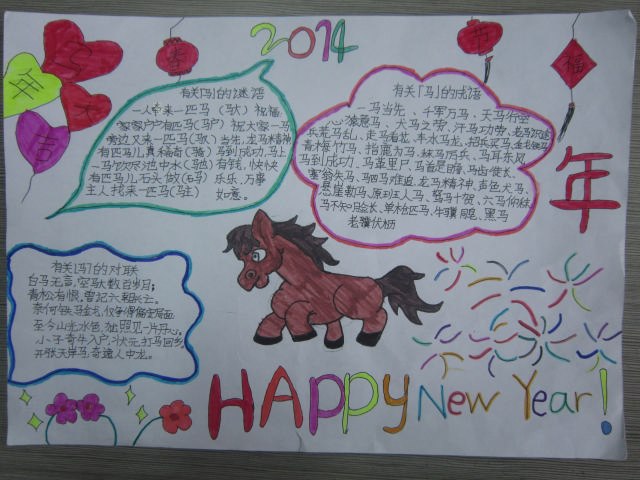 2014
马
年
大
吉
春
节
福
年
有关「马」的谜语
一人牵来一匹马（驮）祝福
家家户户有匹马（驴）祝大家一马
旁边又来一匹马（驭）当先，龙马精神
有匹马儿真稀奇（骑）马到成功，马上
一马饮尽沙中水（驰）有钱，快快
有匹马儿石头做（码）乐乐、万事
主人找来一匹马（驻）如意。
有关「马」的成语
一马当先、千军万马、天马行空
心猿意马、犬马之劳、汗马功劳、老马识途
兵荒马乱、走马看花、车水马龙、招兵买马、金戈铁马
青梅竹马、指鹿为马、秣马厉兵、马耳东风
马到成功、马革里尸、马首是瞻、马齿徒长、
塞翁失马、驷马难追、龙马精神、声色犬马、
悬崖勒马、原班人马、驽马十驾、六马仰秣
马不知脸长、单枪匹马、牛骥同皂、黑马
老骥伏枥
有关「马」的对联
白马无言，空驮数百岁月；
青松有恨，曾记六朝兴亡。
奈何铁马金戈，仅争得偏安局面
至今山光水色，犹照见一片丹心。
小子牵牛入户，状元打马回乡
开张天岸马，奇逸人中龙。
HAppy New Year!